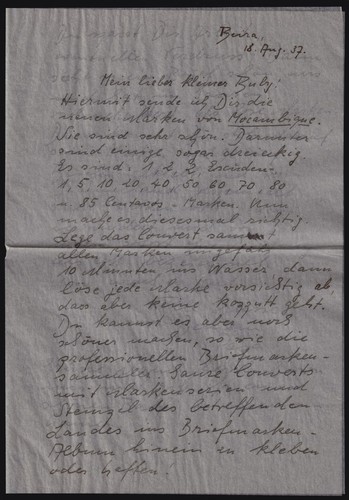 Beira,
18. Aug. 37.
Mein lieber kleiner Buby!
Hiermit sende ich Dir die
neuen Marken von Mocambique.
Sie sind sehr schön. Darunter
sind einige sogar dreieckig.
Es sind: 1, 2, Escudos-
1, 5, 10, 20, 40, 50, 60, 70, 80
u. 85 Centavos-Marken. Nun
mache es diesesmal richtig.
Lege das Couvert samt
allen Marken ungefähr
10 Minuten ins Wasser, dann
löse jede Marke vorsichtig ab,
dass aber keine kaputt geht.
Du kannst es aber noch
schöner machen, so wie die
professionellen Briefmarken-
sammler ganze Couverts
mit Markenserien und
Stempel des betreffenden
Landes ins Briefmarken-
Album hinein zu kleben
oder heften!